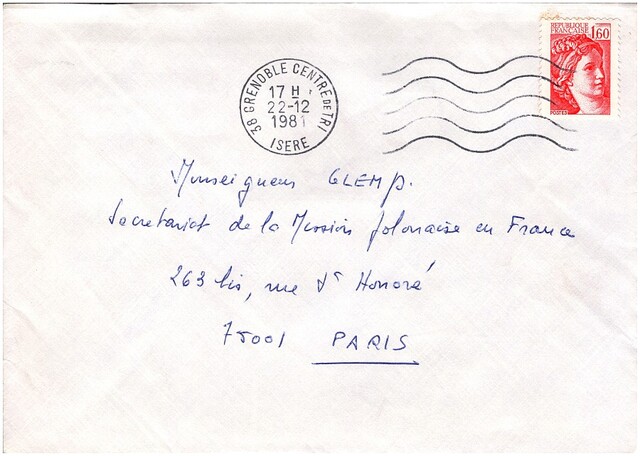 REPUBLIQUE
FRANÇAISE 1,60
POSTES
38 GRENOBLE CENTRE DE TRI
17 H
22-12
1981
ISERE
Monseigneur GLEMP.
Secretariat de la Mission polonaise en France
263 bis, rue St Honoré
75001 PARIS